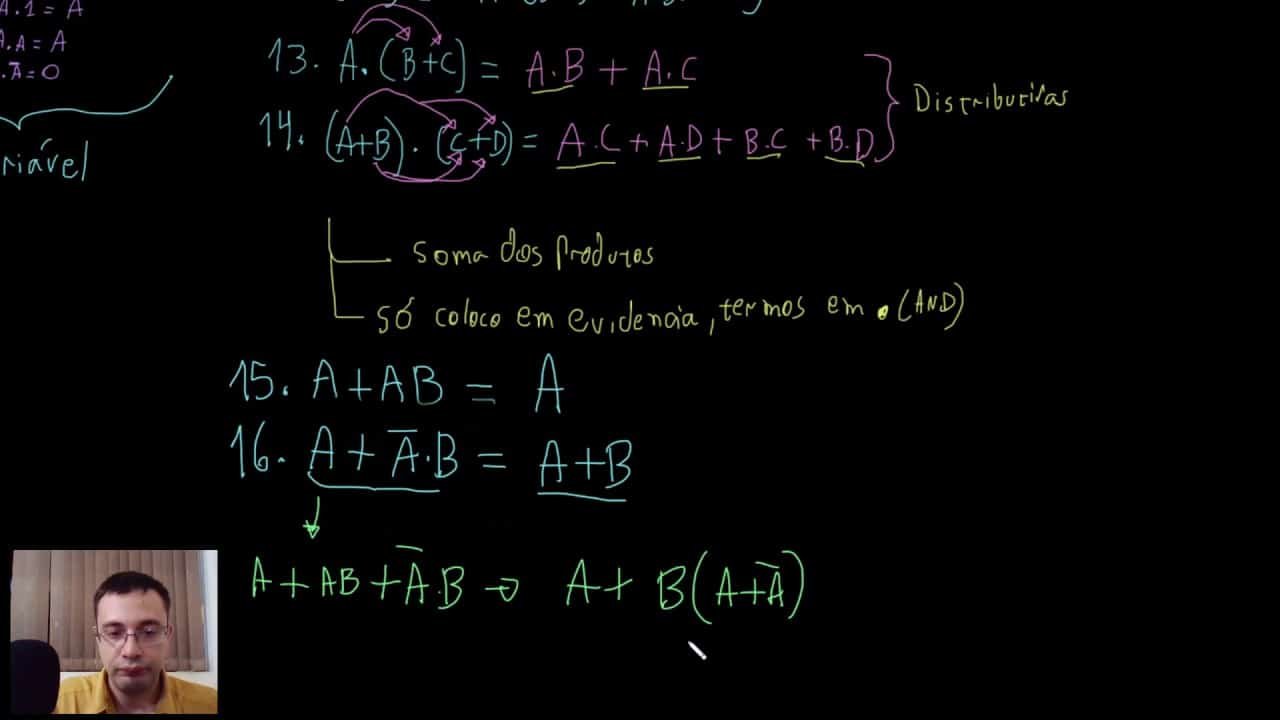 A.1 = A
A.A = A
.Ā = 0
riável
13. A.(B+C) = A.B + A.C
14. (A+B).(C+D) = A.C + A.D + B.C + B.D
Distributivas
soma dos produtos
só coloco em evidencia, termos em . (AND)
15. A+AB = A
16. A + Ā.B = A+B
A + AB + Ā.B → A + B(A+Ā)